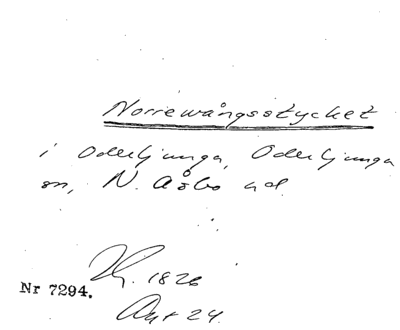 Norrewångsstycket
i Oderljunga, Oderljunga
sn, N. Åsbo hd
Kj. 1826
Nr 7294.
Akt 24.